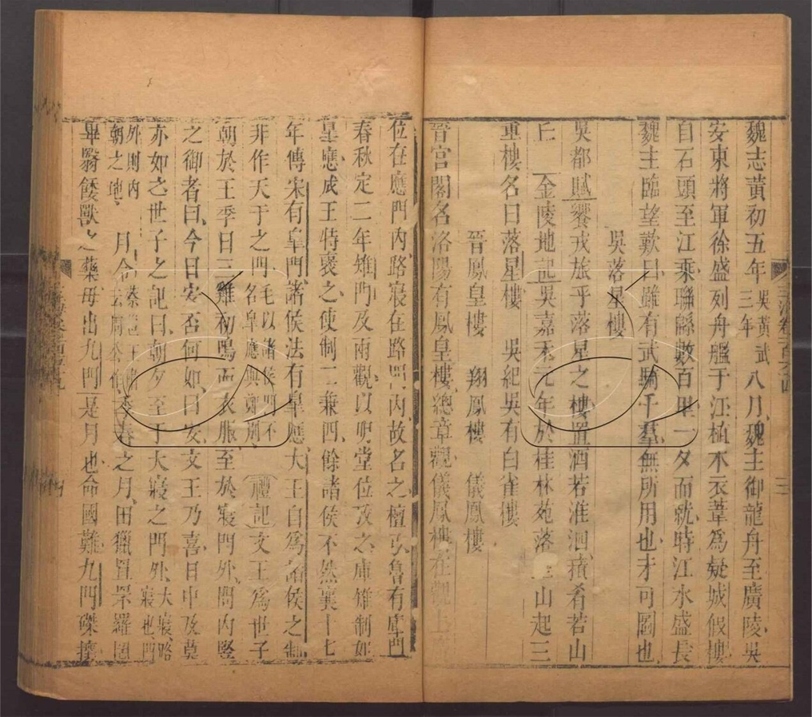 魏志黃初五年吳黃武三年八月魏主御龍舟至廣陵吳
安東將軍徐盛列舟艦于江植木衣葦為疑城假樓
自石頭至江乘聯緜數百里一夕而就時江水盛長
魏主臨望歎曰雖有武騎千羣無所用也未可圖也
吳落星樓
吳都賦饗戎旅乎落星之樓置酒若淮泗積肴若山
丘 金陵地記吳嘉禾元年於桂林苑落星山起三
重樓名曰落星樓 吳紀吳有白雀樓
晉鳳皇樓 翔鳳樓 儀鳳樓
晉宮閣名洛陽有鳳皇樓總章觀儀鳳樓在觀上
位在應門內路寢在路門內故名之檀弓魯有庫門
春秋定二年雉門及兩觀以明堂位攷之庫雉制如
皐應成王特褒之使制二兼四餘諸侯不然襄十七
年傳宋有皐門諸侯法有皐應大王自為諸侯之制
非作天子之門毛以諸侯門不名皐應與鄭別 禮記文王為世子
朝於王季日三雞初鳴而衣服至於寢門外問內豎
之御者曰今日安否何如曰安文王乃喜日中及莫
亦如之世子之記曰朝夕至于大寢之門外大寢路寢也門
外則內朝之地 月令季春之月田獵罝罘羅罔
畢翳餧獸之藥毋出九門是月也命國難九門磔攘